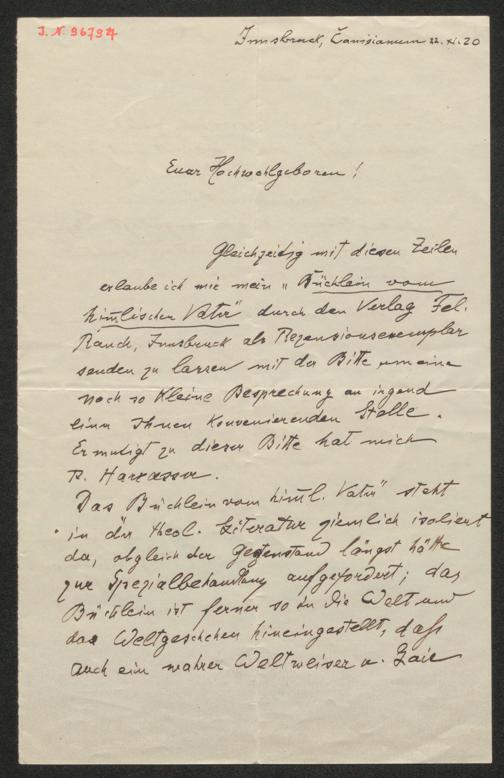 J. N. 96794
Innsbruck, Canisianum 22. XI. 20
Euer Hochwohlgeboren!
Gleichzeitig mit diesen Zeilen
erlaube ich mir mein „Büchlein vom
himmlischen Vater" durch den Verlag Fel.
Rauch, Innsbruck als Rezensionsexemplar
senden zu lassen mit der Bitte um eine
noch so kleine Besprechung an irgend
einer Ihnen konvenierenden Stelle.
Ermutigt zu dieser Bitte hat mich
P. Harrasser.
Das Büchlein vom himml. Vater" steht
in der theol. Literatur ziemlich isoliert
da, obgleich der Gegenstand längst hätte
zur Spezialbehandlung aufgefordert; das
Büchlein ist ferner so in die Welt und
das Weltgeschehen hineingestellt, daß
auch ein wahrer Weltweiser u. Laie